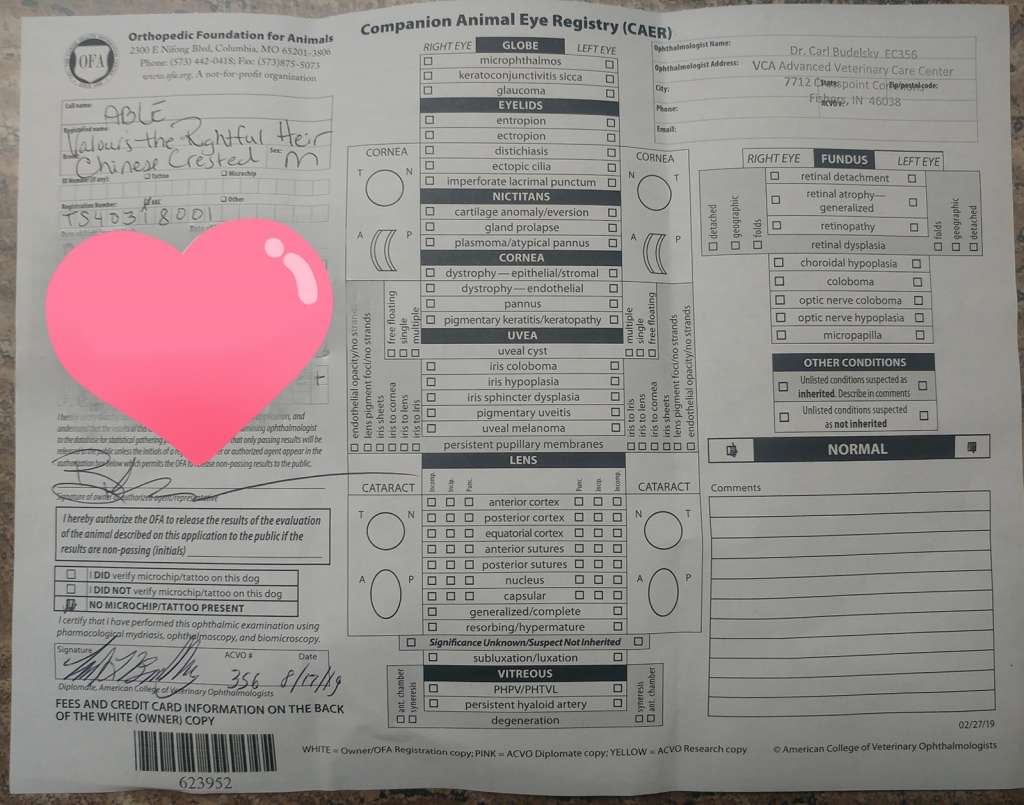 Companion Animal Eye Registry (CAER)
OFA
Orthopedic Foundation for Animals
2300 E Nifong Blvd, Columbia, MO 65201-3806
Phone: (573) 442-0418; Fax: (573)875-5073
www.ofa.org. A not-for-profit organization
Call name:
ABLE
Registered name:
Valour's the Rightful Heir
Breed:
Chinese Crested
Sex:
M
ID Number (if any):
Tattoo
Microchip
Registration Number:
AKC
Other
TS40318001
to the database for statistical gathering
that only passing results will be
Signature of owner or authorized agent/representative
I hereby authorize the OFA to release the results of the evaluation
of the animal described on this application to the public if the
results are non-passing (initials)
I DID verify microchip/tattoo on this dog
I DID NOT verify microchip/tattoo on this dog
NO MICROCHIP/TATTOO PRESENT
I certify that I have performed this ophthalmic examination using
pharmacological mydriasis, ophthalmoscopy, and biomicroscopy.
Signature
ACVO #
Date
356
8/17/19
Diplomate, American College of Veterinary Ophthalmologists
FEES AND CREDIT CARD INFORMATION ON THE BACK
OF THE WHITE (OWNER) COPY
623952
RIGHT EYE GLOBE LEFT EYE
microphthalmos
keratoconjunctivitis sicca
glaucoma
EYELIDS
entropion
ectropion
distichiasis
ectopic cilia
imperforate lacrimal punctum
NICTITANS
cartilage anomaly/eversion
gland prolapse
plasmoma/atypical pannus
CORNEA
dystrophy—epithelial/stromal
dystrophy—endothelial
pannus
pigmentary keratitis/keratopathy
UVEA
uveal cyst
iris coloboma
iris hypoplasia
iris sphincter dysplasia
pigmentary uveitis
uveal melanoma
persistent pupillary membranes
LENS
Incomp. Incip. Punc. Punc. Incip. Incomp.
anterior cortex
posterior cortex
equatorial cortex
anterior sutures
posterior sutures
nucleus
capsular
generalized/complete
resorbing/hypermature
Significance Unknown/Suspect Not Inherited
subluxation/luxation
VITREOUS
PHPV/PHTVL
persistent hyaloid artery
degeneration
CORNEA
T N
A P
free floating
single
multiple
endothelial opacity/no strands
lens pigment foci/no strands
iris sheets
iris to cornea
iris to lens
iris to Iris
CATARACT
T N
A P
ant. chamber
syneresis
CORNEA
N T
A P
multiple
single
free floating
iris to Iris
iris to lens
iris to cornea
iris sheets
lens pigment foci/no strands
endothelial opacity/no strands
CATARACT
N T
A P
syneresis
ant. chamber
Ophthalmologist Name:
Dr. Carl Budelsky EC356
Ophthalmologist Address:
VCA Advanced Veterinary Care Center
City:
State:
Zip/postal code:
7712 Crosspoint Commons
Phone:
ACVO #:
Fishers, IN 46038
Email:
RIGHT EYE FUNDUS LEFT EYE
retinal detachment
retinal atrophy—
generalized
retinopathy
retinal dysplasia
choroidal hypoplasia
coloboma
optic nerve coloboma
optic nerve hypoplasia
micropapilla
detached
geographic
folds
folds
geographic
detached
OTHER CONDITIONS
Unlisted conditions suspected as
inherited. Describe in comments
Unlisted conditions suspected
as not inherited
NORMAL
Comments
02/27/19
WHITE = Owner/OFA Registration copy; PINK = ACVO Diplomate copy; YELLOW = ACVO Research copy
© American College of Veterinary Ophthalmologists